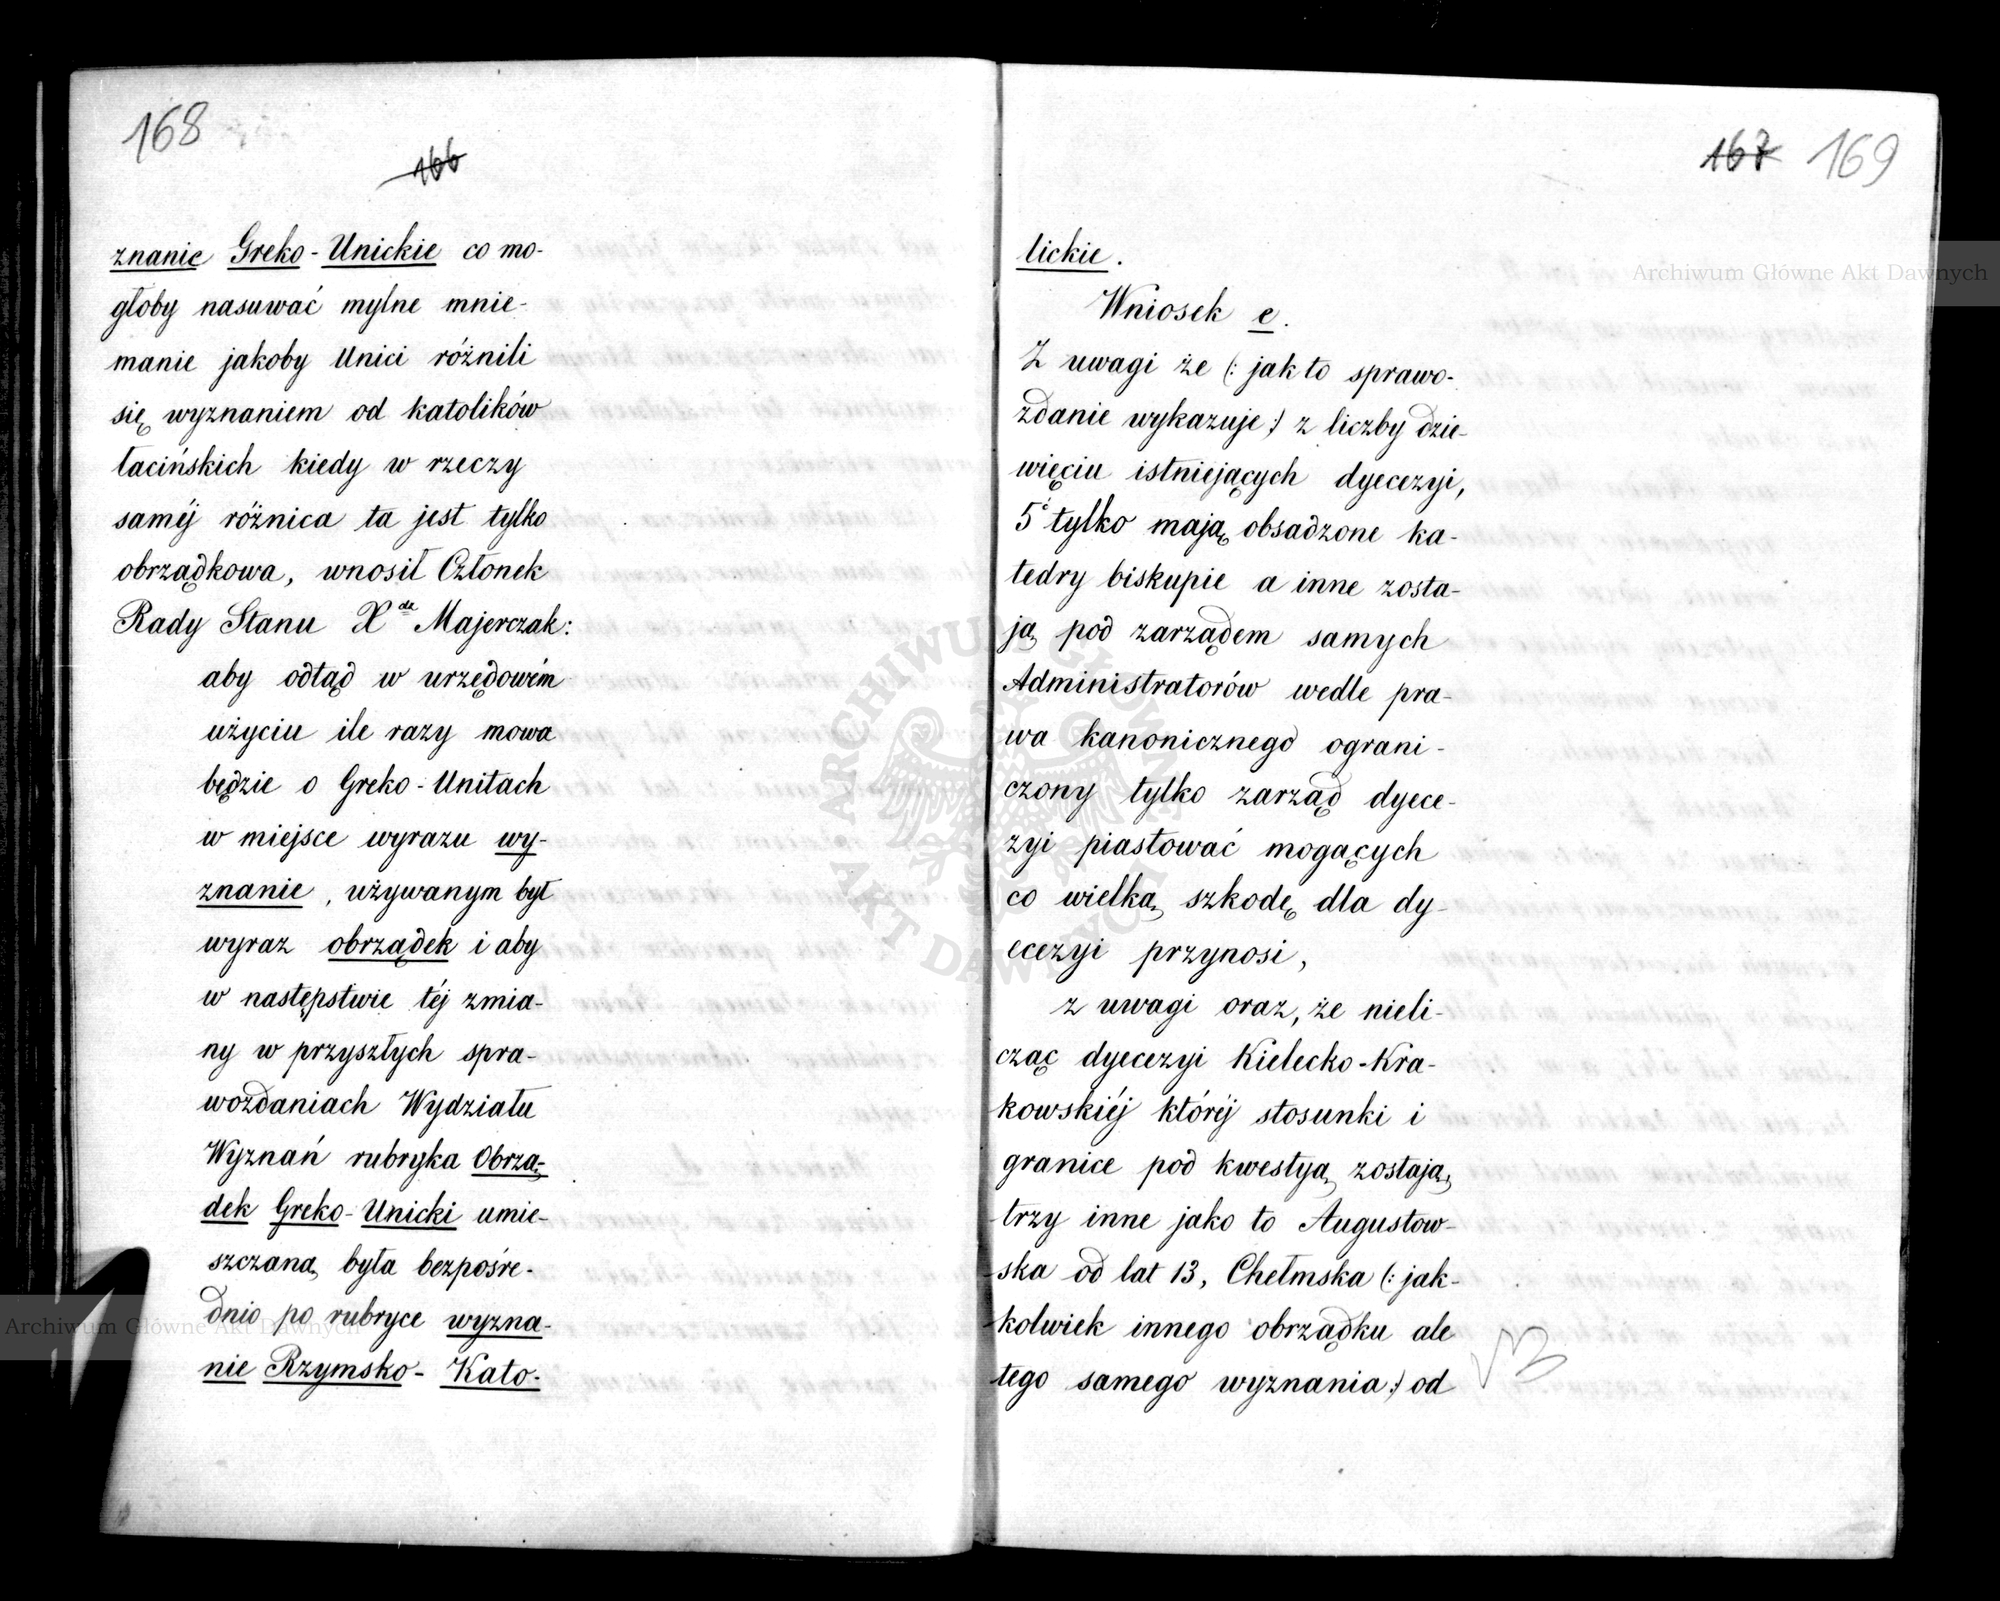 168
166
znanie Greko-Unickie co mo-
głoby nasuwać mylne mnie-
manie jakoby Unici różnili
się wyznaniem od katolików
łacińskich kiedy w rzeczy
saméj różnica ta jest tylko
obrządkowa, wnosił Członek
Rady Stanu X dz Majerczak:
aby odtąd w urzędowém
użyciu ile razy mowa
będzie o Greko-Unitach
w miejsce wyrazu wy-
znanie, używanym był
wyraz obrządek i aby
w następstwie téj zmia-
ny w przyszłych spra-
wozdaniach Wydziału
Wyznań rubryka Obrzą-
dek Greko-Unicki umie-
szczaną była bezpośre-
dnio po rubryce wyzna-
nie Rzymsko-Kato-
167 169
lickie.
Wniosek e.
Z uwagi że (: jak to sprawo-
zdanie wykazuje :) z liczby dzie-
więciu istniejących dyecezyi,
5ć tylko mają obsadzone ka-
tedry biskupie a inne zosta-
ją pod zarządem samych
Administratorów wedle pra-
wa kanonicznego ograni-
czony tylko zarząd dyece-
zyi piastować mogących
co wielką szkodę dla dy-
ecezyi przynosi,
z uwagi oraz, że nieli-
cząc dyecezyi Kielecko-Kra-
kowskiéj któréj stosunki i
granice pod kwestyą zostają,
trzy inne jako to Augustow-
ska od lat 13, Chełmska (: jak-
kolwiek innego obrządku ale
tego samego wyznania :) od
Archiwum Główne Akt Dawnych
Archiwum Główne Akt Dawnych
ARCHIWUM GŁÓWNE AKT DAWNYCH